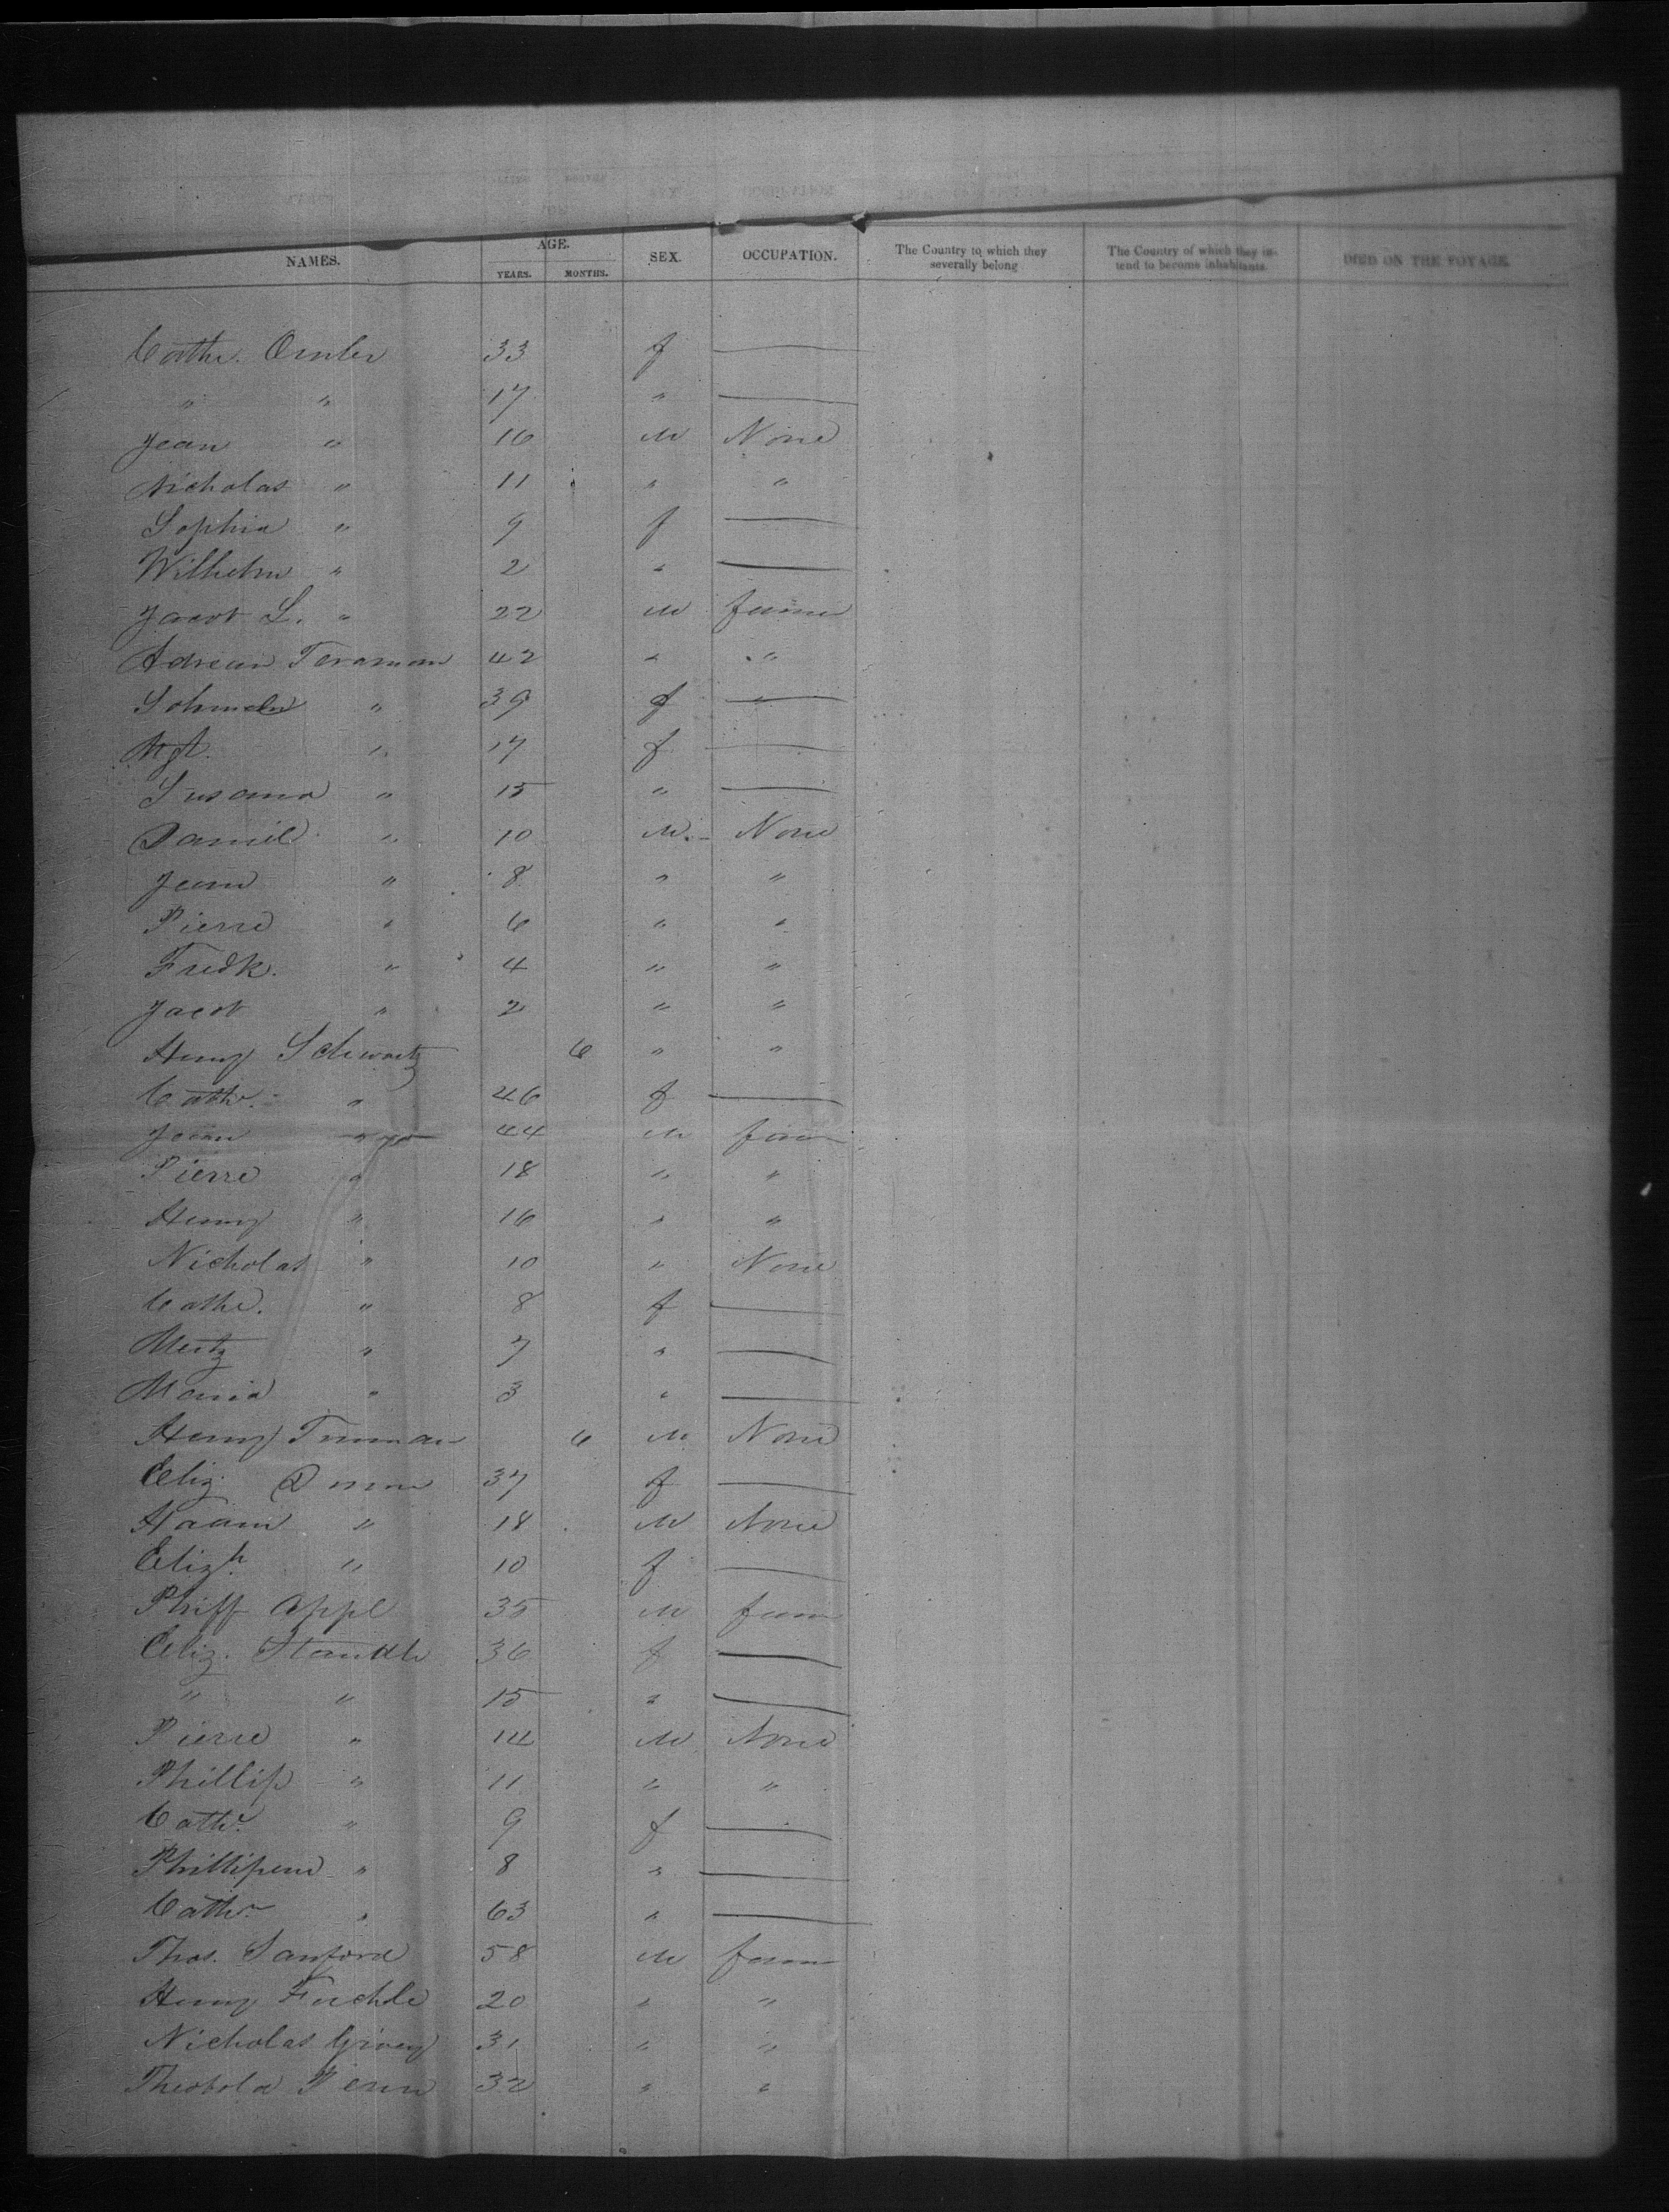 NAMES. AGE. YEARS. MONTHS. SEX. OCCUPATION. The Country to which they severally belong The Country of which they intend to become inhabitants. DIED ON THE VOYAGE.
Cathe. 33 f —
" " 17 " —
Jean " 16 M None
Nicholas " 11 " "
Sophia " 9 f —
Wilhelm " 2 " —
Jacob L. " 22 M farmer
Adrean 42 " "
" 39 f —
Mgt. " 17 f —
Susanna " 15 " —
Daniel " 10 M. None
Jean " 8 " "
Pierre " 6 " "
Fredk. " 4 " "
Jacob " 2 " "
Henry Schwartz 6 " "
Cathr. " 46 f —
Jean " 44 M farm
Pierre " 18 " "
Henry " 16 " "
Nicholas " 10 " None
Cathe. " 8 f —
" 7 " —
Maria " 3 " —
Henry 6 M None
Eliz. 37 f —
" 18 M None
Elizh. " 10 f —
Appl 35 M farm
Eliz. 36 f —
" " 15 " —
Pierre " 14 M None
Phillip " 11 " "
Cathr. " 9 f —
" 8 " —
Cathr " 63 " —
Thos. Sanford 58 M farm
Henry 20 " "
Nicholas 31 " "
32 " "